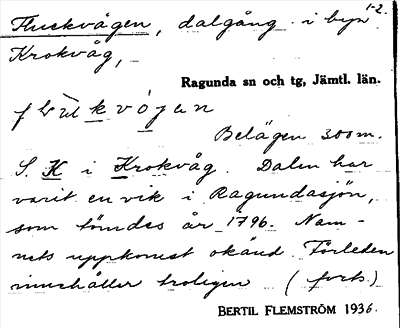 1-2.
Fluckvågen, dalgång i byn
Krokvåg,
Ragunda sn och tg, Jämtl. län.
Belägen 300 m.
S. K i Krokvåg. Dalen har
varit en vik i Ragundasjön,
som tömdes år 1796. Nam-
nets uppkomst okänd. Förleden
innehåller troligen (forts.)
BERTIL FLEMSTRÖM 1936.